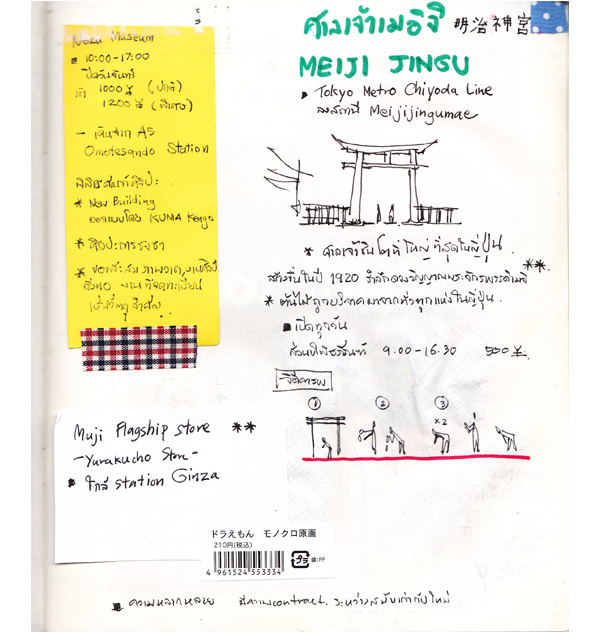 Nezu Museum
10:00-17:00
ปิดวันจันทร์
1000 ¥ (ปกติ)
1200 ¥ (พิเศษ)
- เดินจาก A5
Omotesando Station
พิพิธภัณฑ์ศิลปะ
* New Building
ออกแบบโดย KUMA Kengo
* ศิลปะการชงชา
ศาลเจ้าเมจิ 明治神宮
MEIJI JINGU
Tokyo Metro Chiyoda Line
ลงสถานี Meijijingumae
* ศาลเจ้าชินโตที่ใหญ่ที่สุดในญี่ปุ่น
สร้างขึ้นในปี 1920 รำลึกดวงวิญญาณพระจักรพรรดิเมจิ **
* ต้นไม้ถูกบริจาคมาจากทั่วทุกแห่งในญี่ปุ่น
เปิดทุกวัน
9.00-16.30 500 ¥
วิธีเคารพ
① ② ③
x2
Muji Flagship store **
- Yurakucho Store -
ใกล้ station Ginza
ドラえもん モノクロ原画
210円(税込)
4 961524 553334
プラ 袋:PP
ความหลากหลาย มีความcontract ระหว่างสมัยเก่ากับใหม่